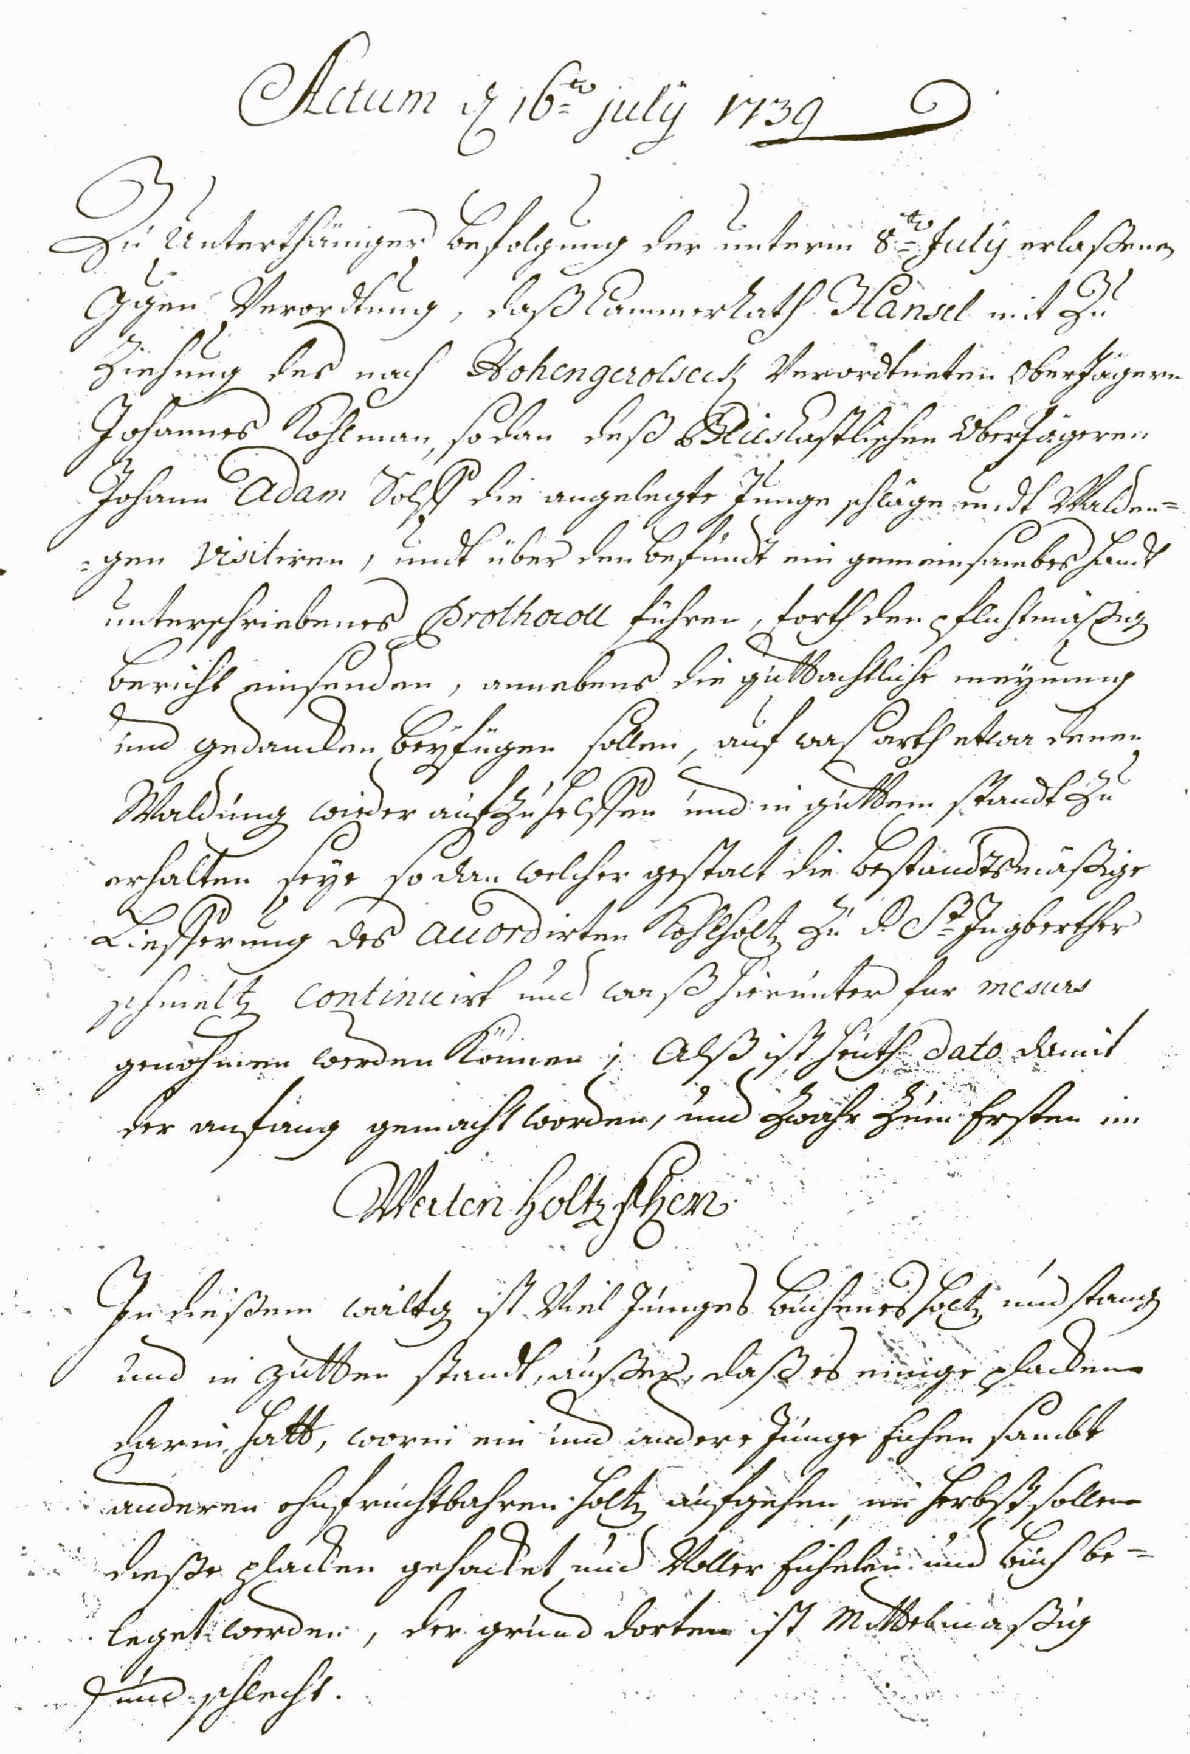 Actum d 16ten july 1739
Zu Unterthäniger befolgung der unterm 8ten July erlaßenen
Ggen Verordtnung, daß Cammerrath Hansel mit Zu
Ziehung des nach Hohengeroldseck verordtneten Oberjägeren
Johannes Kohlman, sodan deß Blieskastlischen Oberjägeren
Johann Adam die angelegte Junge schläge undt Walden=
=gen visitiren, undt über den befundt ein gemeinsambes handt
unterschriebenes Prothocoll führen, forth den pflichtmäßig
bericht einsenden, annebens die guttachtliche meynung
und gedancken beyfügen sollen, auf was arth etwa denen
Waldung wieder aufzuhelffen und in guttem standt zu
erhalten seye sodan welcher gestalt die bestandtsmäßige
Liefferung des accordirten Kohlholtz zu d. St Ingberther
schmeltz continuirt und waß hierunter fur mesurs
genohmen werden können; Alß ist heuth dato damit
der anfang gemacht worden, und zwahr zum Ersten im
Weiten holtz
In dießem waltg ist viel junges buchenes holtz und stang
und in gutten standt, außer, daß es einige placken
darin hatt, worin ein und andere junge Eichen sambt
anderen ohnfruchtbahren holtz aufgehen, im herbst sollen
dieße placken gehacket und voller Eichelen und buch be=
leget werden, der grund dorten ist Mittelmaßig
und schlecht.